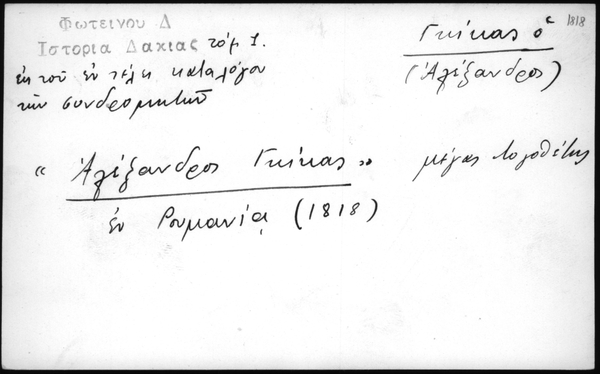 Φωτεινου Δ
Ιστορια Δακιας τόμ 1.
ἐκ τοῦ ἐν τέλει καταλόγου
τῶν συνδρομητῶν
Γκίκας ὁ
1818
(Ἀλέξανδρος)
« Ἀλέξανδρος Γκίκας » μέγας λογοθέτης
ἐν Ρουμανίᾳ (1818)